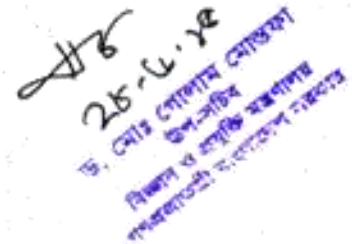 ২৮-৮-১৫
ড. মোঃ গোলাম মোস্তফা
উপ-সচিব
বিজ্ঞান ও প্রযুক্তি মন্ত্রণালয়
গণপ্রজাতন্ত্রী বাংলাদেশ সরকার